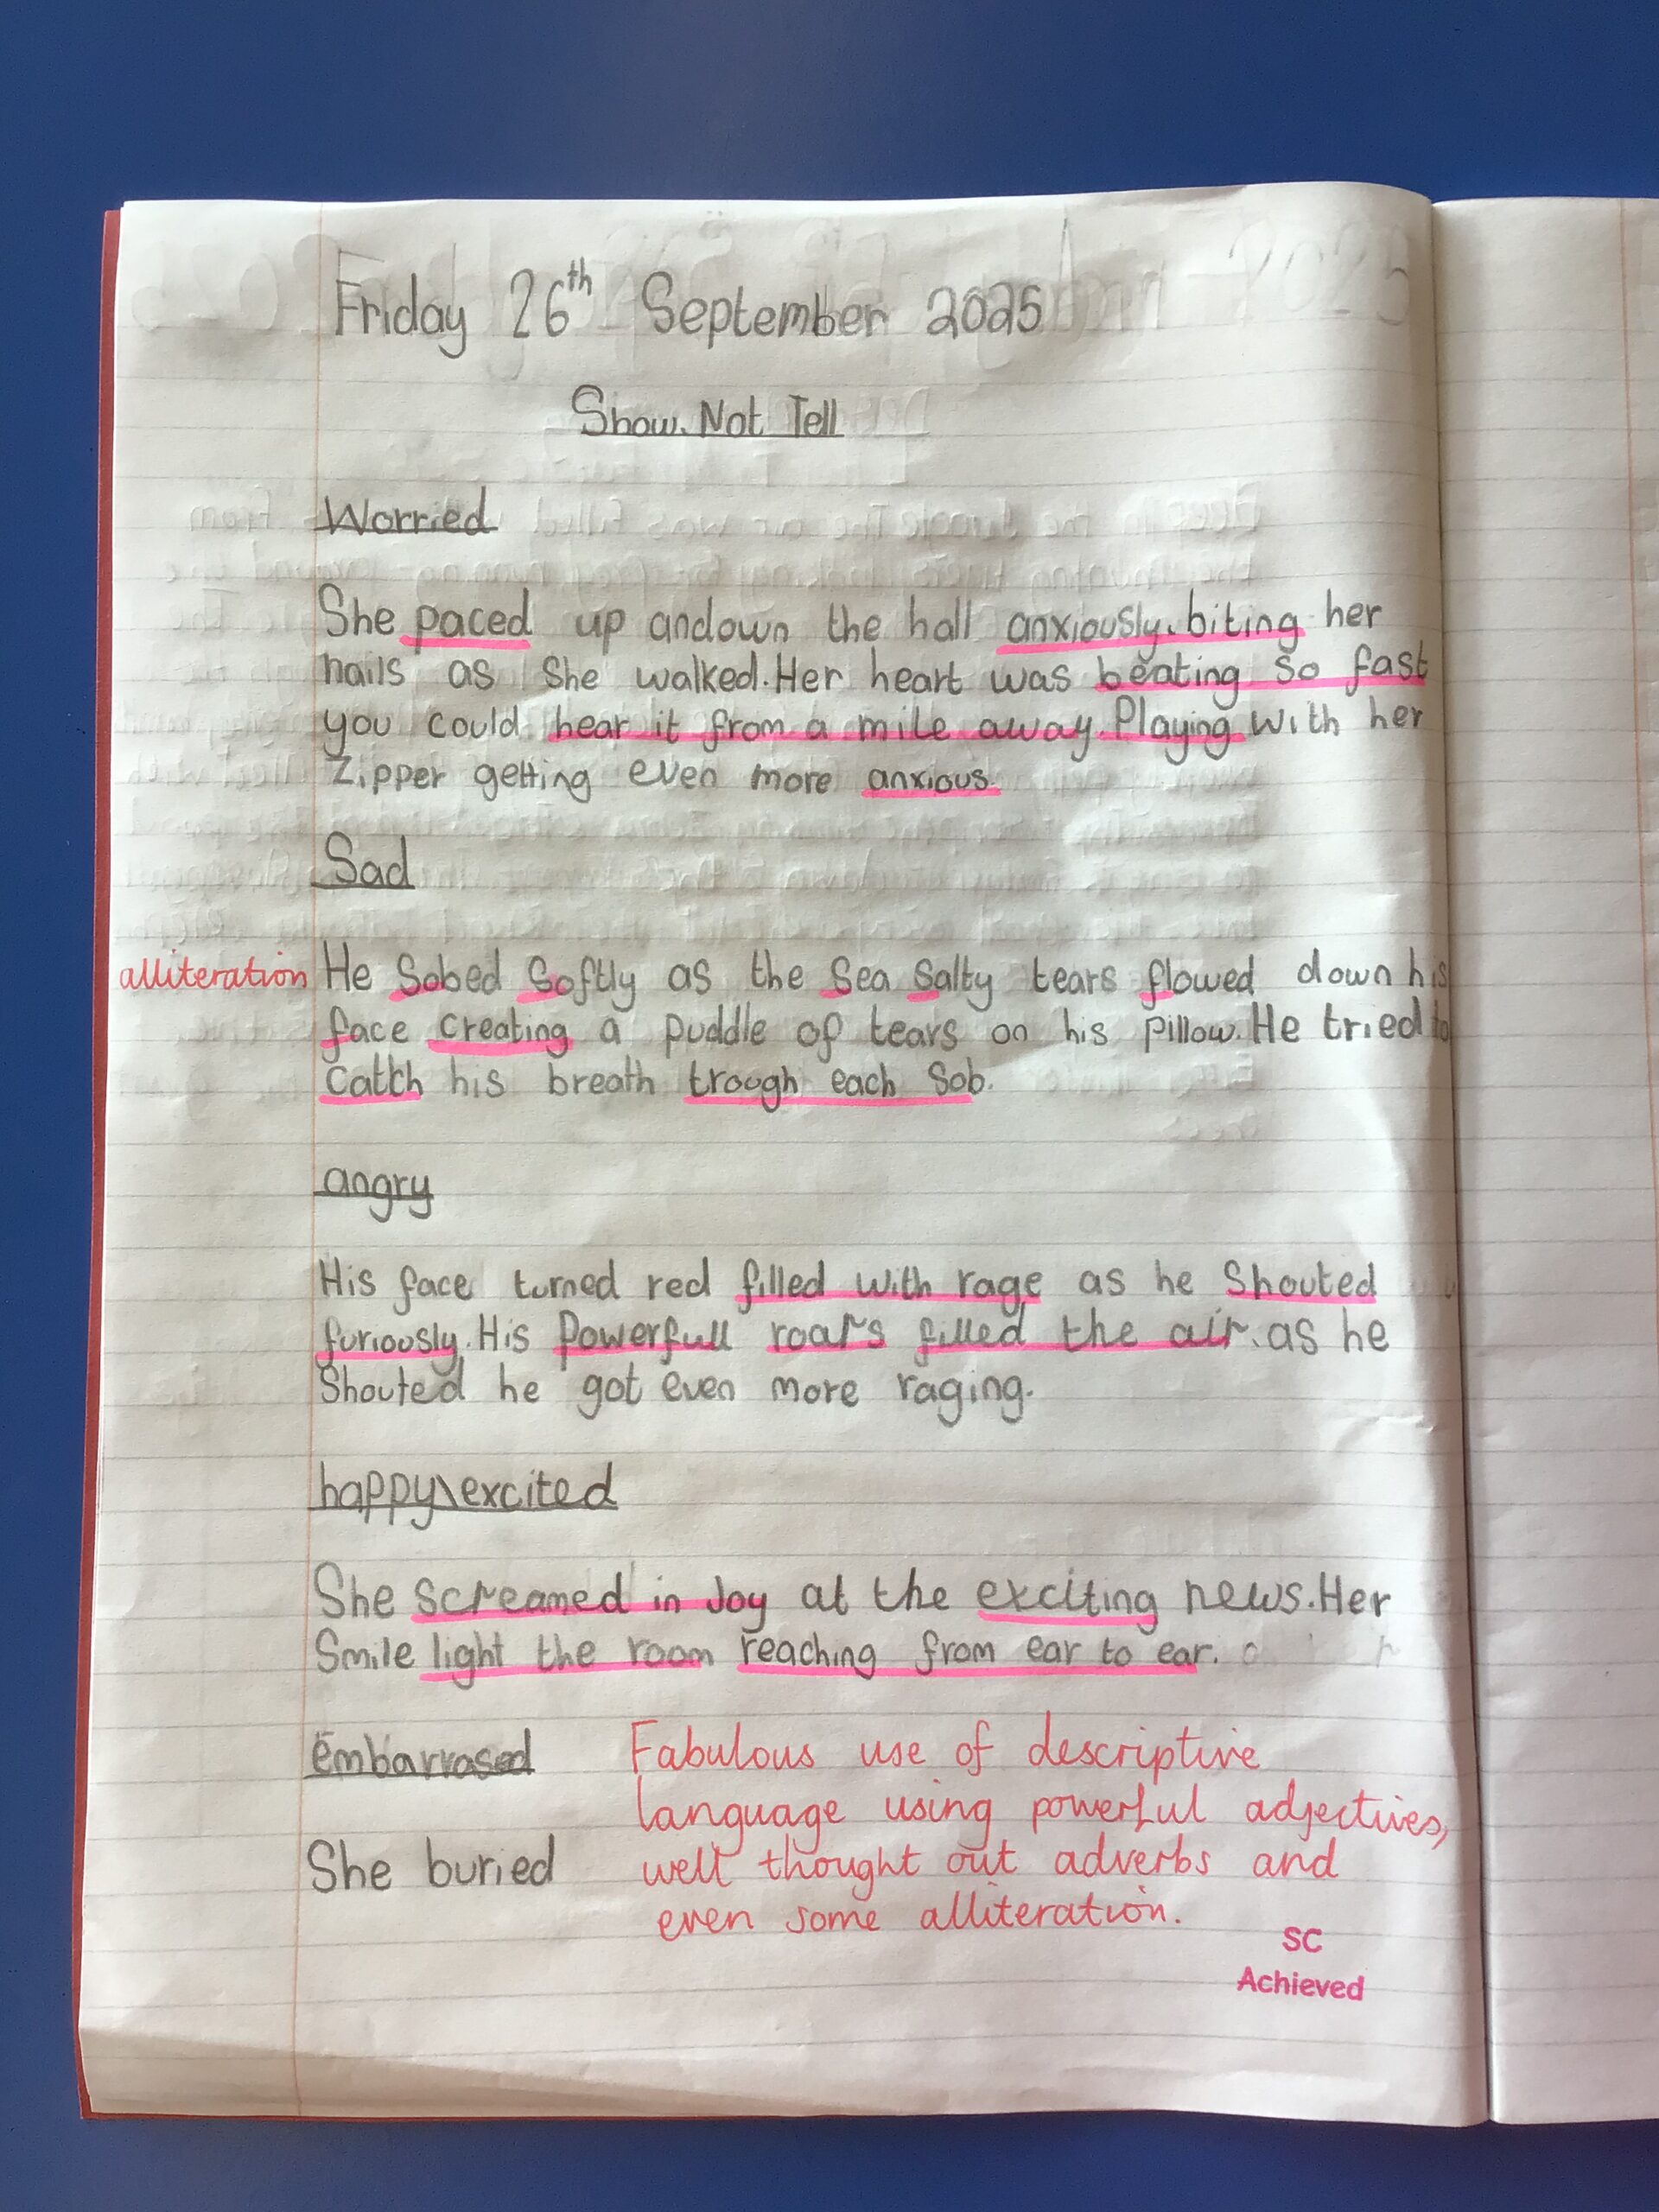 Friday 26th September 2025
Show Not Tell
Worried
She paced up andown the hall anxiously, biting her
nails as she walked. Her heart was beating so fast
you could hear it from a mile away. Playing with her
zipper getting even more anxious.
Sad
alliteration He Sobed Softly as the Sea Salty tears flowed down his
face creating a puddle of tears on his pillow. He tried to
catch his breath trough each Sob.
angry
His face turned red filled with rage as he Shouted
furiously. His Powerfull roars filled the air. as he
Shouted he got even more raging.
happy\excited
She screamed in Joy at the exciting news. Her
Smile light the room reaching from ear to ear.
embarrased Fabulous use of descriptive
language using powerful adjectives,
She buried well thought out adverbs and
even some alliteration.
SC
Achieved